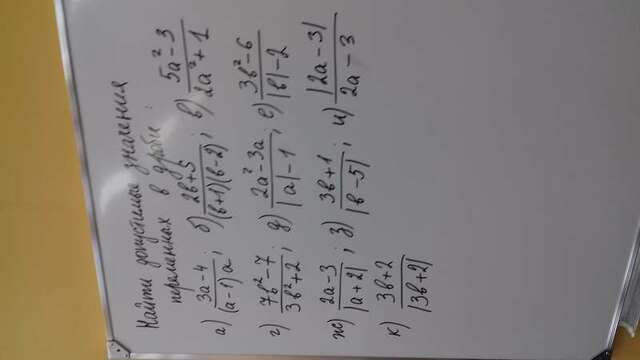 Найти допустимые значения
переменных в дроби :
а) (3a-4)/((a-1)a); б) (2b+5)/((b+1)(b-2)); в) (5a²-3)/(2a²+1)
г) (7b²-7)/(3b²+2); д) (2a²-3a)/(|a|-1); е) (3b²-6)/(|b|-2)
ж) (2a-3)/|a+2|; з) (3b+1)/|b-5|; и) |2a-3|/(2a-3)
к) (3b+2)/|3b+2|